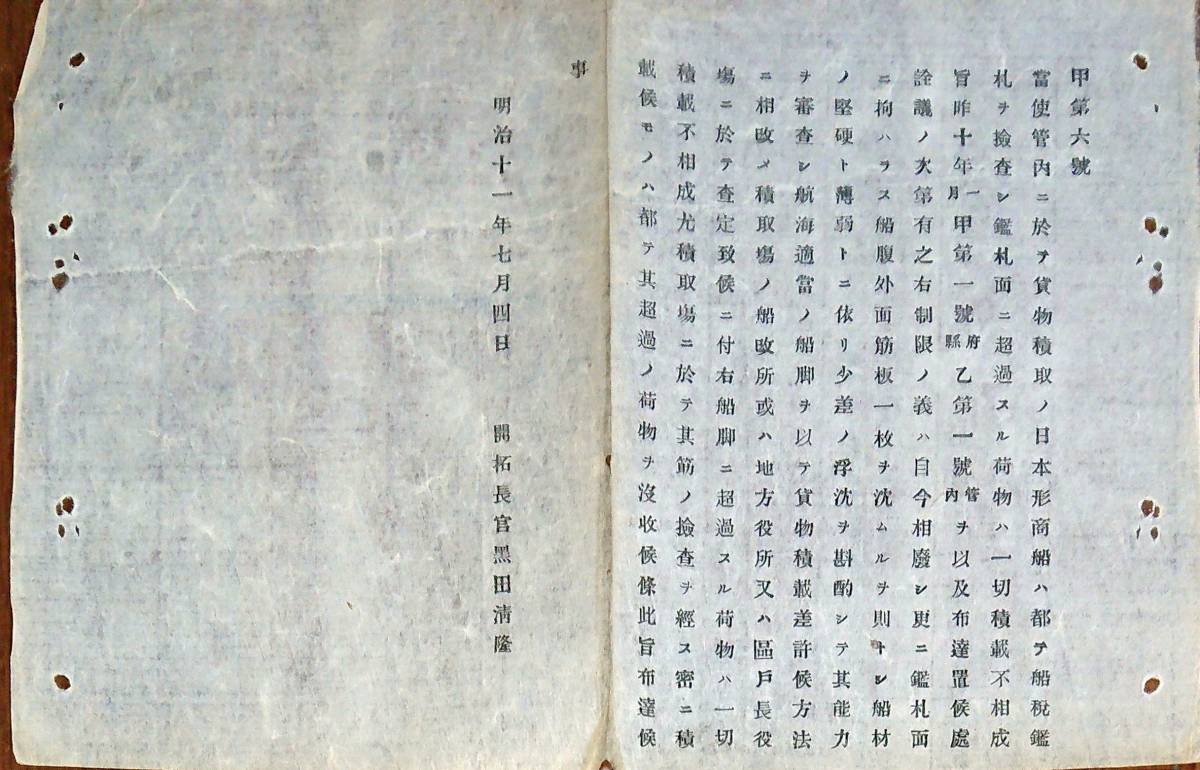 甲第六號
當使管内ニ於テ貨物積取ノ日本形商船ハ都テ船税鑑
札ヲ撿査シ鑑札面ニ超過スル荷物ハ一切積載不相成
旨昨十年一月甲第一號府縣乙第一號管内ヲ以及布達置候處
詮議ノ次第有之右制限ノ義ハ自今相廢シ更ニ鑑札面
ニ拘ハラス船腹外面筋板一枚ヲ沈ムルヲ則トシ船材
ノ堅硬ト薄弱トニ依リ少差ノ浮沈ヲ斟酌シテ其能力
ヲ審査シ航海適當ノ船脚ヲ以テ貨物積載差許候方法
ニ相改メ積取塲ノ船改所或ハ地方役所又ハ區戸長役
塲ニ於テ査定致候ニ付右船脚ニ超過スル荷物ハ一切
積載不相成尤積取塲ニ於テ其筋ノ撿査ヲ經ス密ニ積
載候モノハ都テ其超過ノ荷物ヲ沒收候條此旨布達候
事
明治十一年七月四日　開拓長官黑田淸隆